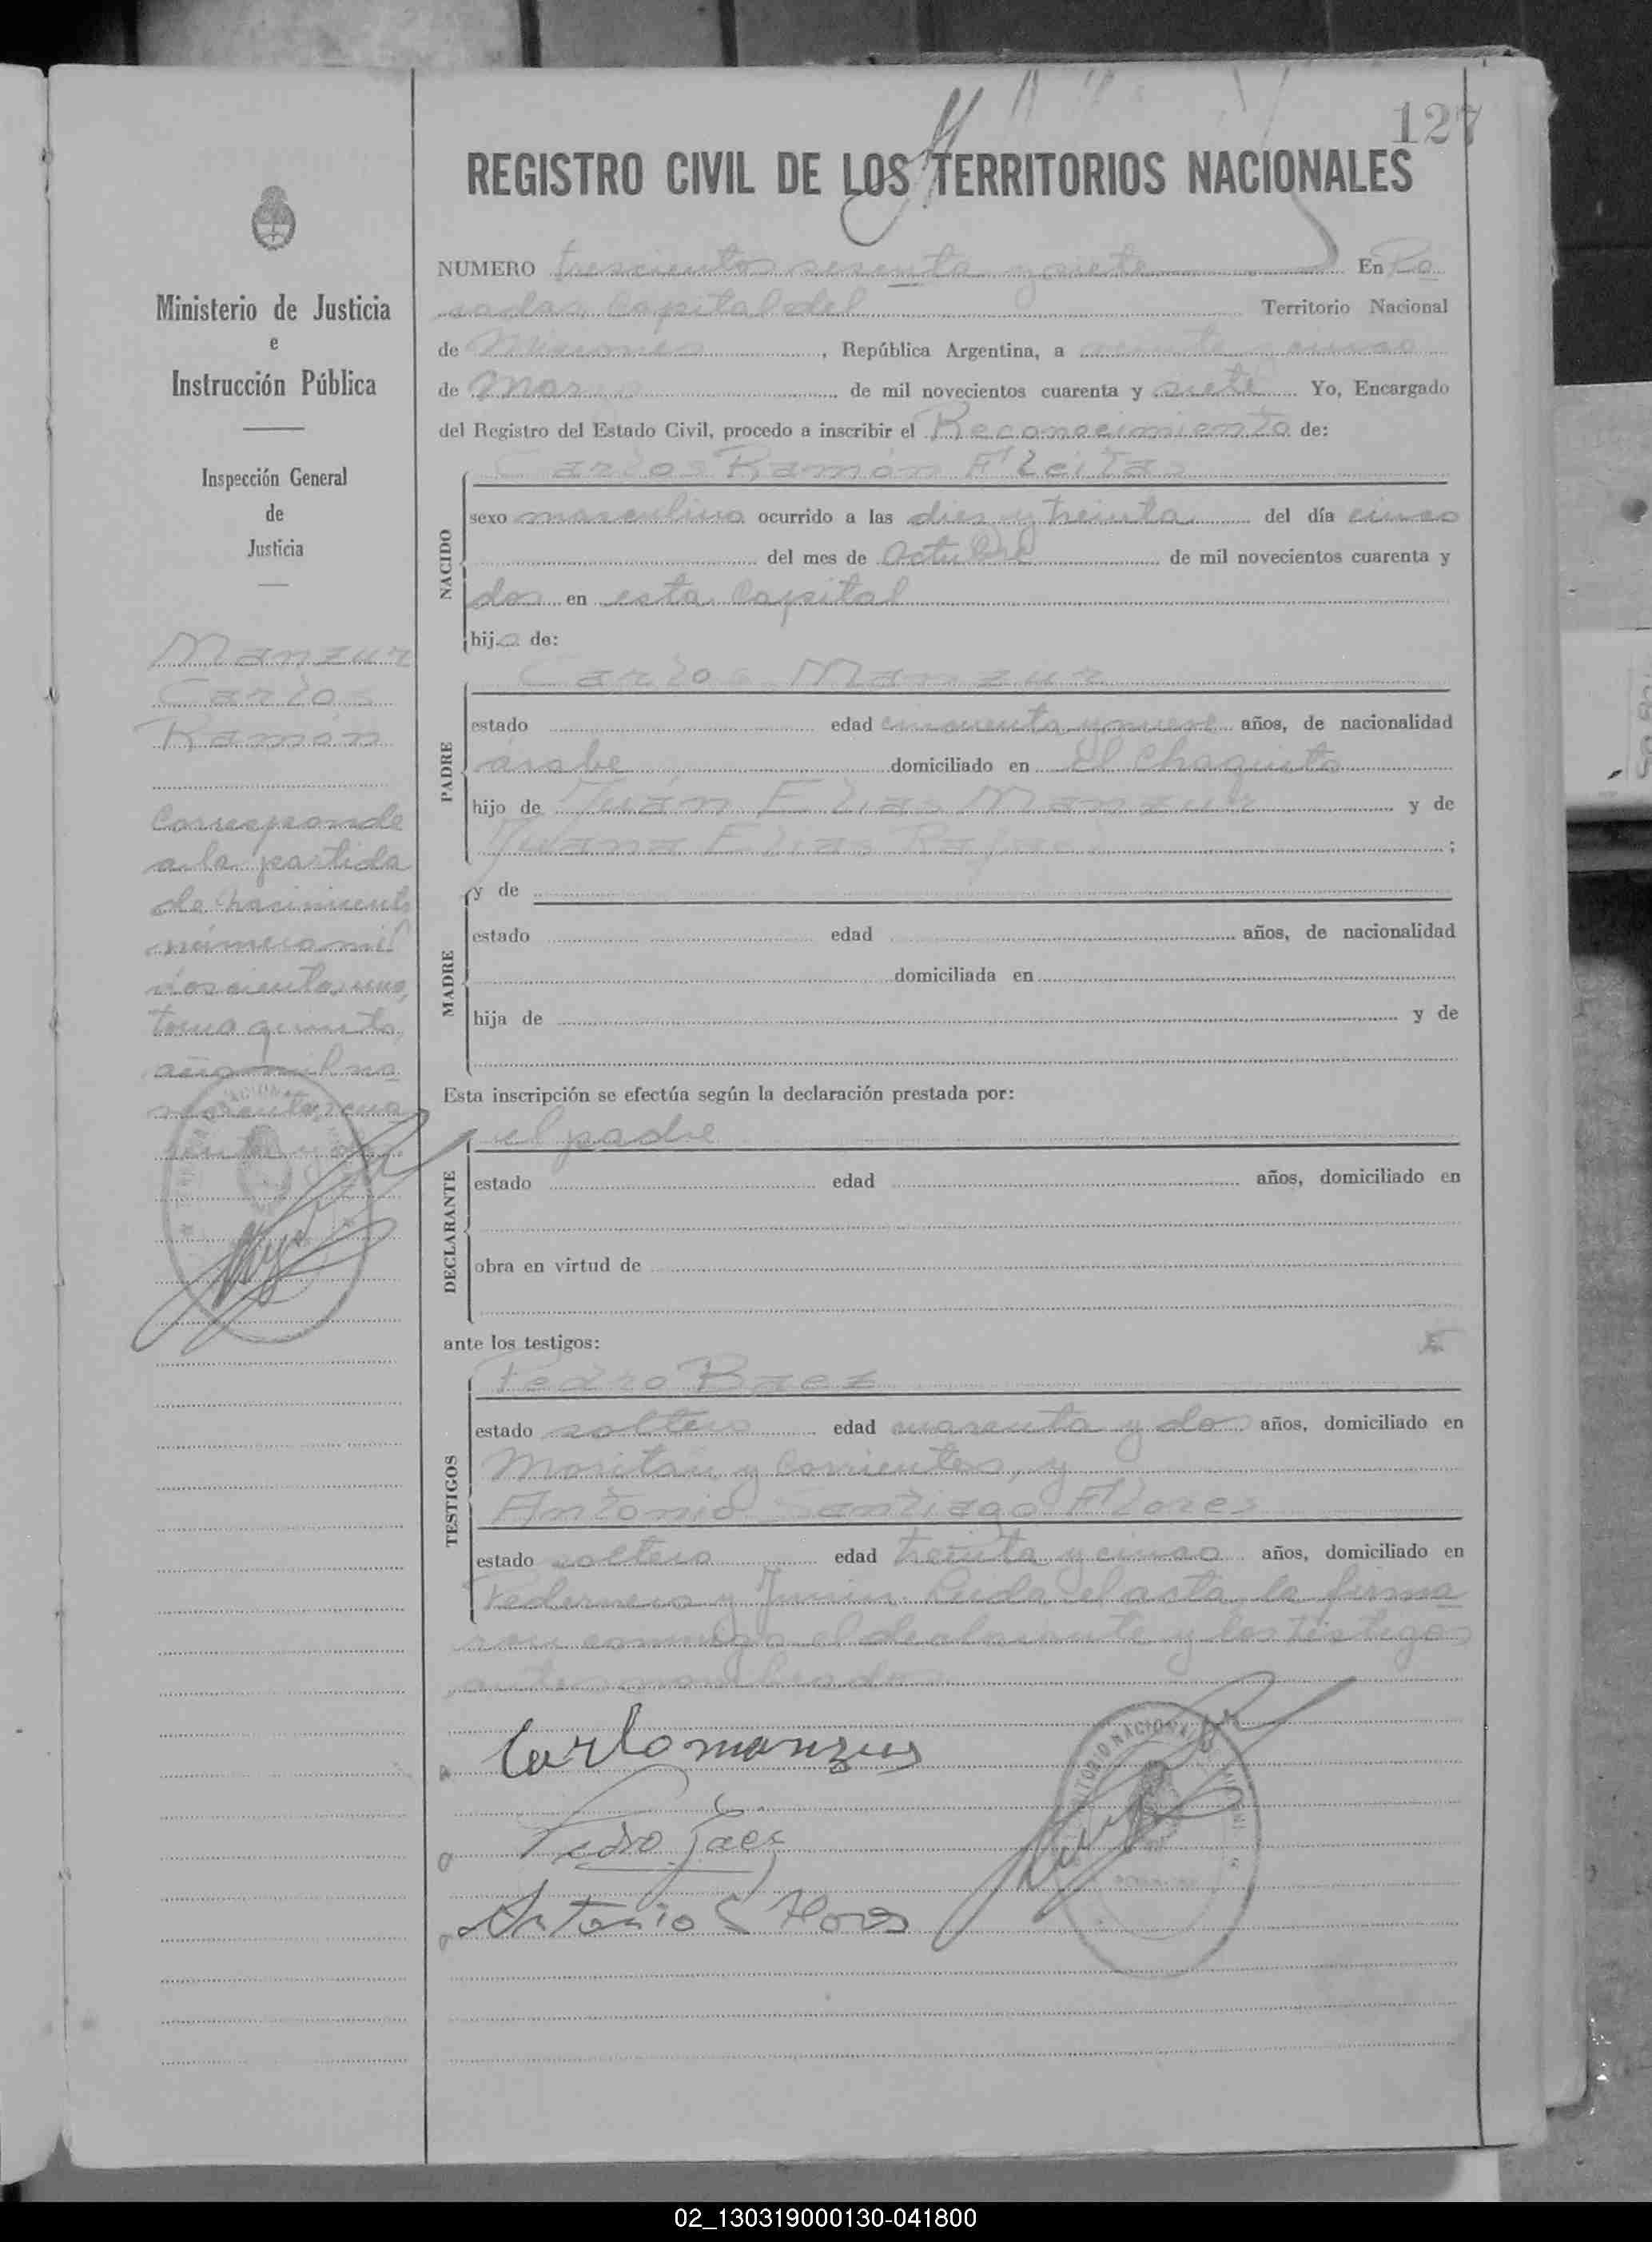 127
REGISTRO CIVIL DE LOS TERRITORIOS NACIONALES
Ministerio de Justicia
e
Instrucción Pública
Inspección General
de
Justicia
Manzur
Carlos
Ramón
Corresponde
a la partida
de nacimiento
número mil
doscientos uno,
tomo quinto,
año mil no
vecientos cua
renta y dos.
NUMERO trescientos sesenta y siete En Po
sadas Capital del Territorio Nacional
de Misiones, República Argentina, a veinte
de de mil novecientos cuarenta y siete Yo, Encargado
del Registro del Estado Civil, procedo a inscribir el Reconocimiento de:
Carlos Ramón Fleitas
NACIDO
sexo masculino ocurrido a las diez y treinta del día cinco
del mes de Octubre de mil novecientos cuarenta y
dos en esta Capital
hijo de:
Carlos Manzur
PADRE
estado edad cincuenta y nueve años, de nacionalidad
árabe domiciliado en El Chaquito
hijo de Juán Elias Manzur y de
Juana Elias Rafael;
y de
MADRE
estado edad años, de nacionalidad
domiciliada en
hija de y de
Esta inscripción se efectúa según la declaración prestada por:
el padre
DECLARANTE
estado edad años, domiciliado en
obra en virtud de
ante los testigos:
Pedro Baez
TESTIGOS
estado soltero edad cuarenta y dos años, domiciliado en
Moritán y Corrientes, y
Antonio Santiago Flores
estado soltero edad treinta y cinco años, domiciliado en
Pedernera y Junin. Leida el acta la firma
ron conmigo el declarante y los testigos
antes nombrados
Carlo manzur
Pedro Baez
Antonio S Flores
02_130319000130-041800